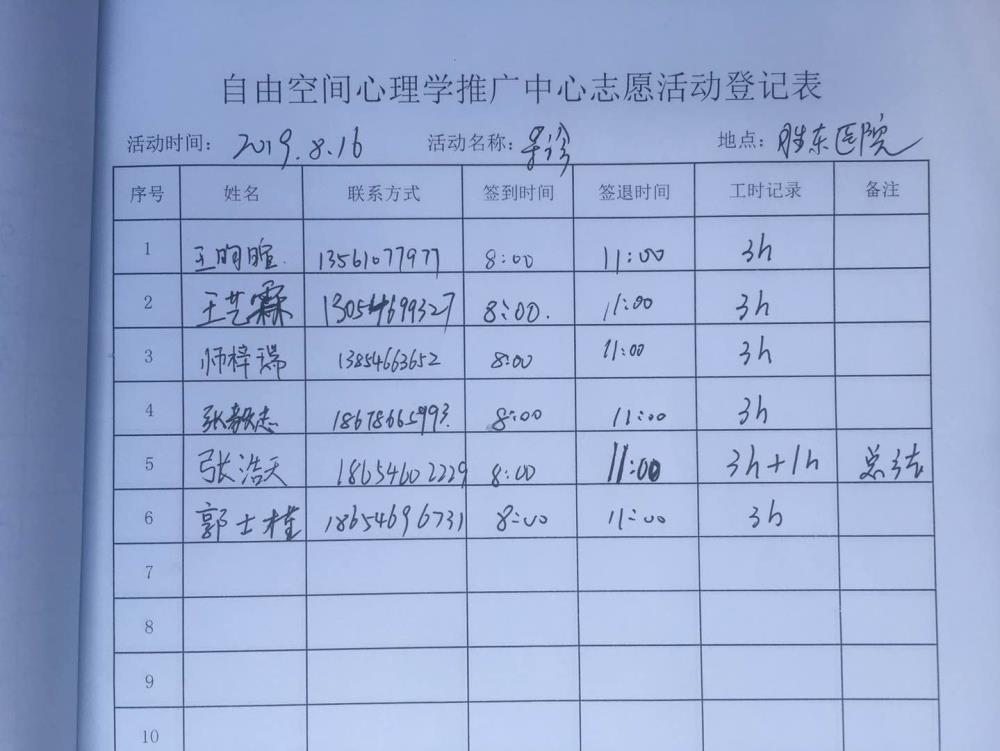 自由空间心理学推广中心志愿活动登记表
活动时间: 2019.8.16 活动名称: 导诊 地点: 胜东医院
序号 姓名 联系方式 签到时间 签退时间 工时记录 备注
1 王昀暄 13561077977 8:00 11:00 3h
2 王艺霖 13054699327 8:00. 11:00 3h
3 师梓瑞 13854663652 8:00 11:00 3h
4 张毅志 18678665993. 8:00 11:00 3h
5 张浩天 18654602229 8:00 11:00 3h+1h 总结
6 郭士槿 18654696731 8:00 11:00 3h
7
8
9
10